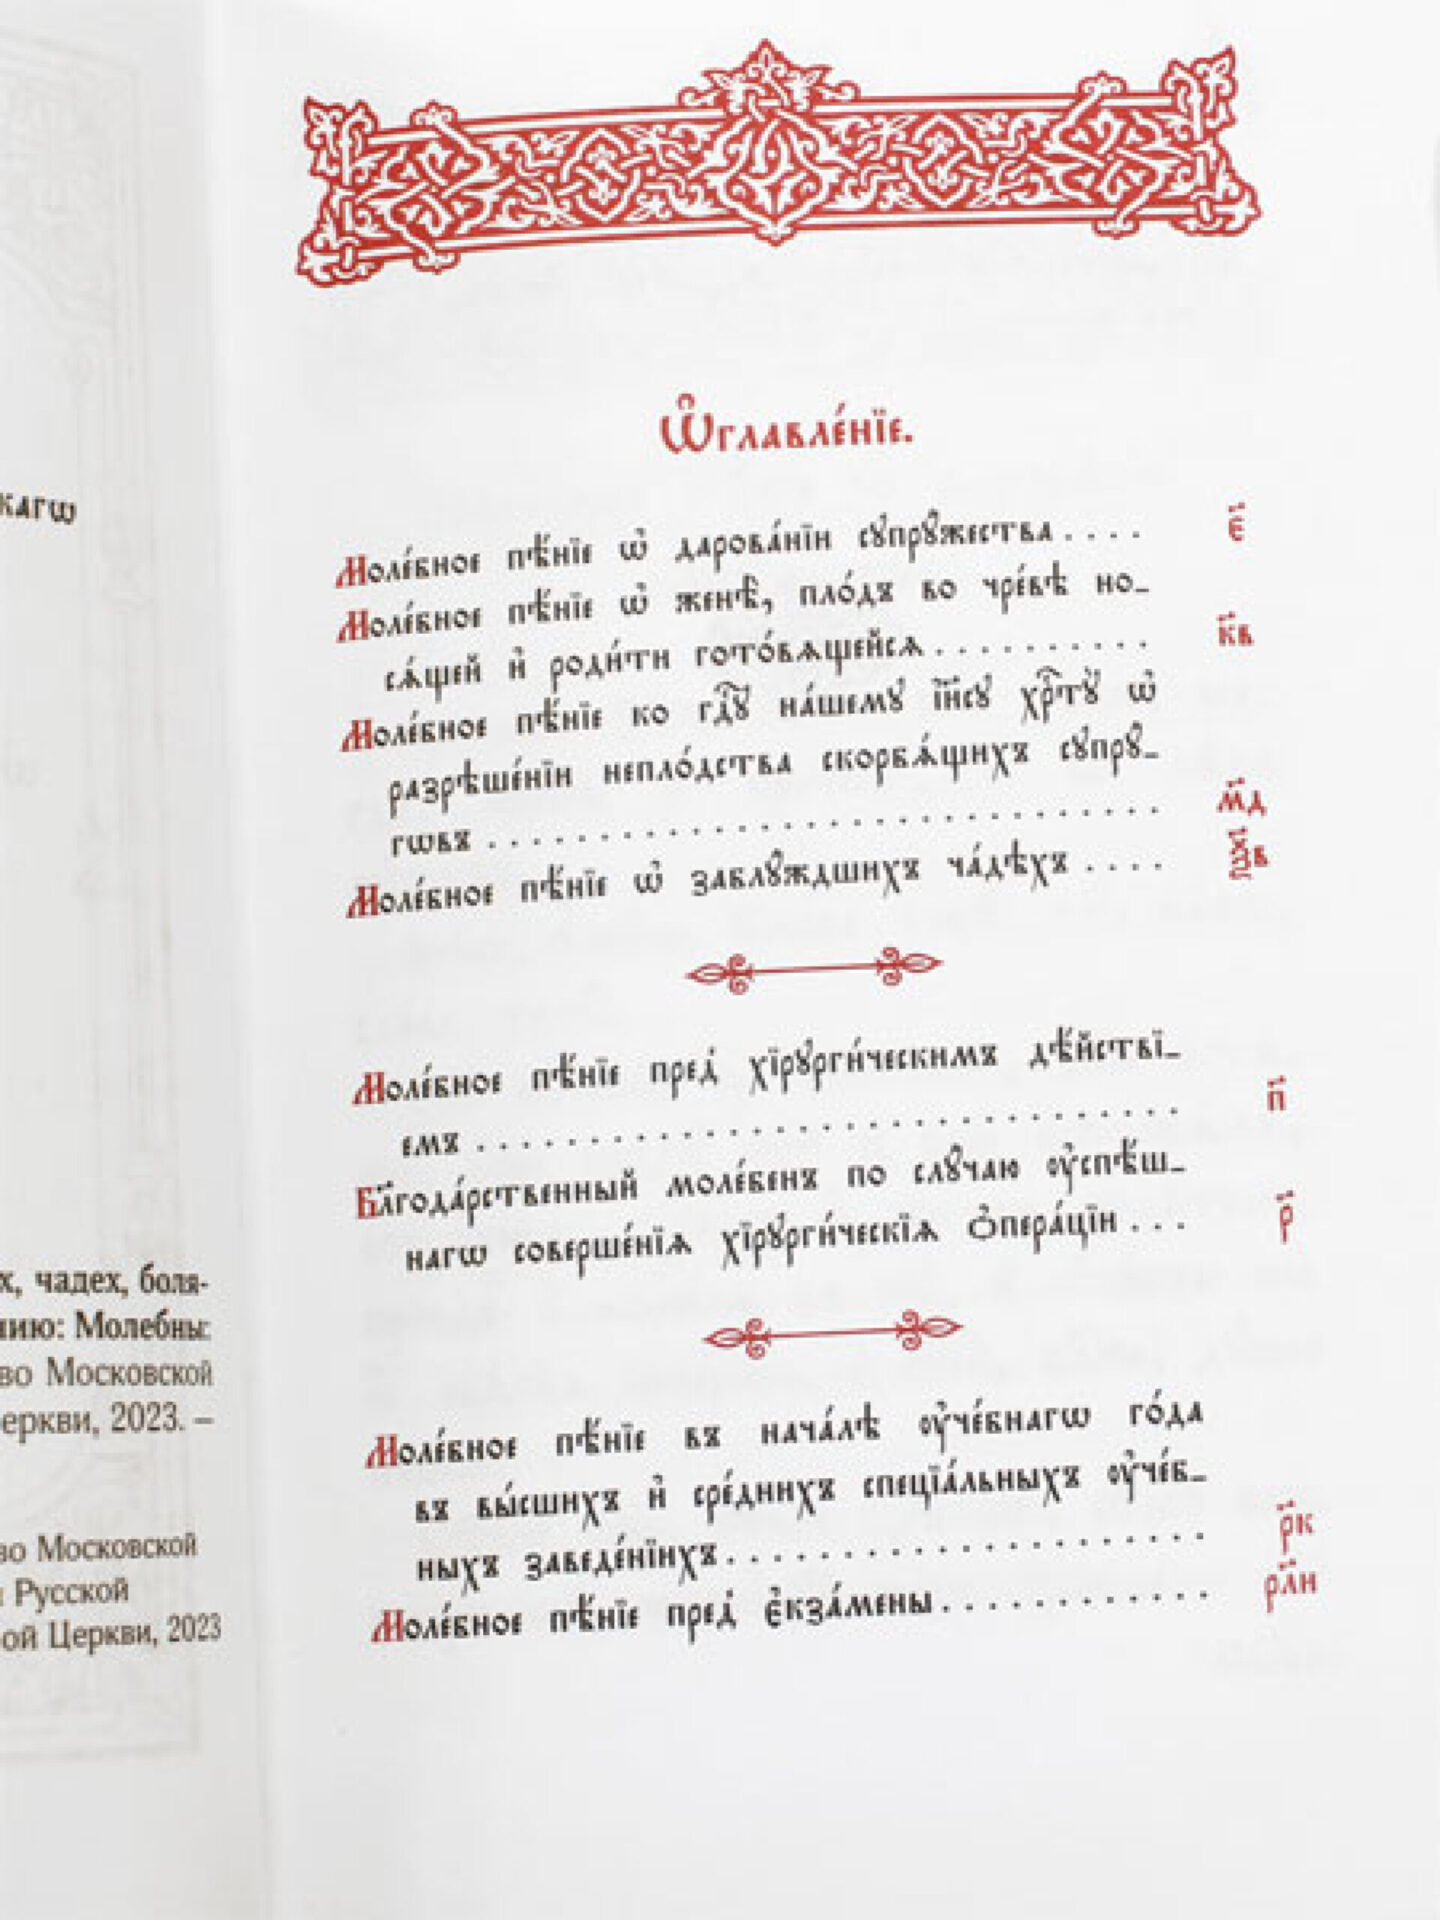 кагѡ
х, чадех, боля-
нию: Молебны:
во Московской
еркви, 2023. –
во Московской
Русской
ой Церкви, 2023
Ѡ҆главле́нїе.
Моле́бное пѣ́нїе ѡ҆ дарова́нїи сꙋпрꙋ́жества . . . . є҃
Моле́бное пѣ́нїе ѡ҆ женѣ̀, пло́дъ во чре́вѣ но_
сѧ́щей и҆ роди́ти гото́вѧщейсѧ . . . . . . . . . . к҃в
Моле́бное пѣ́нїе ко гдⷭ҇ꙋ на́шемꙋ і҆и҃сꙋ хрⷭ҇тꙋ̀ ѡ҆
разрѣше́нїи непло́дства скорбѧ́щихъ сꙋпрꙋ́_
гѡвъ . . . . . . . . . . . . . . . . . . . . . . . . . . . . . м҃д
Моле́бное пѣ́нїе ѡ҆ заблꙋ́ждшихъ ча́дѣхъ . . . .
Моле́бное пѣ́нїе пред̾ хїрꙋрги́ческимъ дѣ́йствї_
емъ . . . . . . . . . . . . . . . . . . . . . . . . . . . . . . п҃
Бл҃года́рственный моле́бенъ по слꙋ́чаю ᲂу҆спѣ́ш_
нагѡ соверше́нїѧ хїрꙋрги́ческїѧ ѻ҆пера́цїи . . . р҃
Моле́бное пѣ́нїе въ нача́лѣ ᲂу҆че́бнагѡ го́да
въ вы́сшихъ и҆ сре́днихъ спеціа́льныхъ ᲂу҆че́б_
ныхъ заведе́нїихъ . . . . . . . . . . . . . . . . . . . . . р҃к
Моле́бное пѣ́нїе пред̾ є҆кза́мены . . . . . . . . . . . . рл҃и